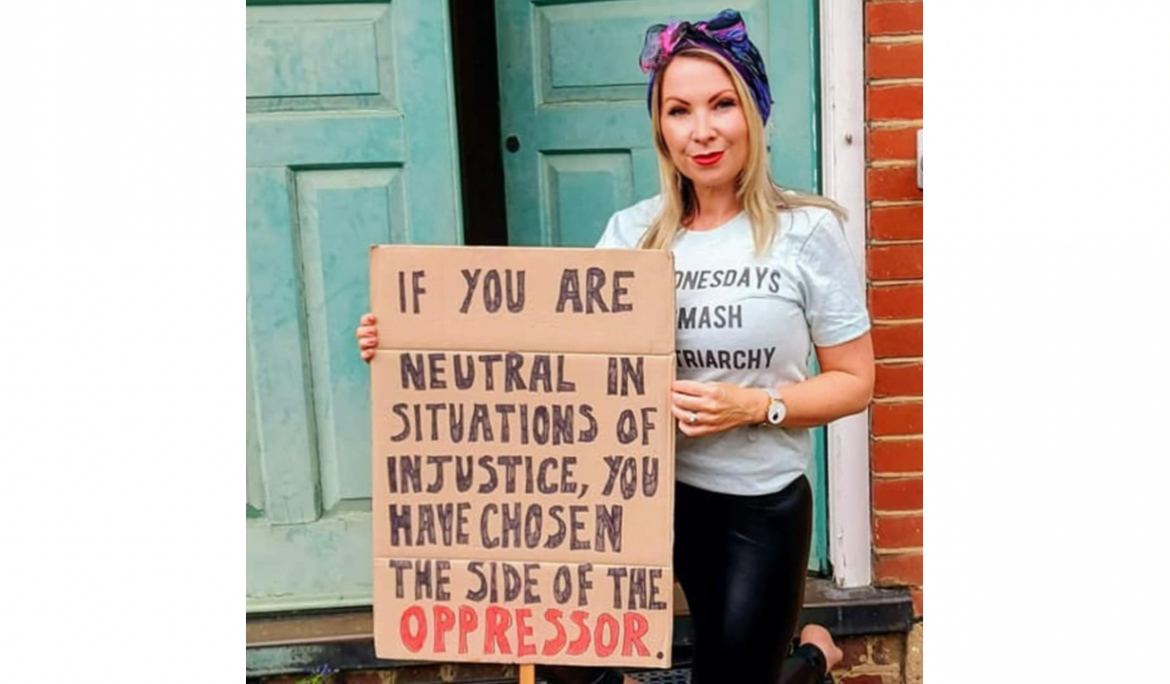 IF YOU ARE
NEUTRAL IN
SITUATIONS OF
INJUSTICE, YOU
HAVE CHOSEN
THE SIDE OF THE
OPPRESSOR.
DNESDAYS
MASH
TRIARCHY